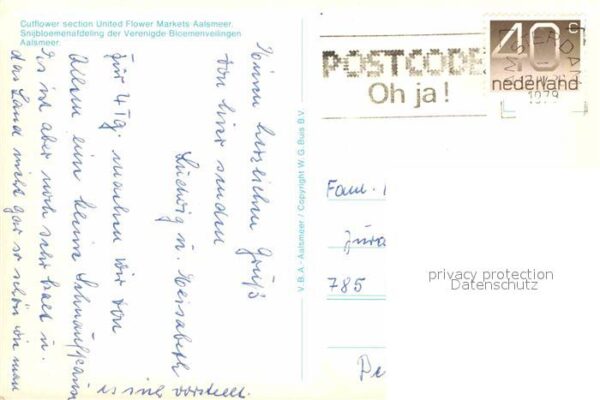 Cutflower section United Flower Markets-Aalsmeer.
Snijbloemenafdeling der Verenigde Bloemenveilingen
Aalsmeer.
Einen herzlichen Gruß
von hier senden
Ludwig u. Elisabeth
Für 4 Tg. machen wir von
allem eine kleine Schnaufpause
Es ist aber noch sehr kalt u.
das Land nicht gar so schön wie man
es sich vorstellt.
V.B.A.-Aalsmeer / Copyright W.G. Buis B.V.
POSTCODE
Oh ja!
40c
nederland
1979
Fam.
785
privacy protection
Datenschutz